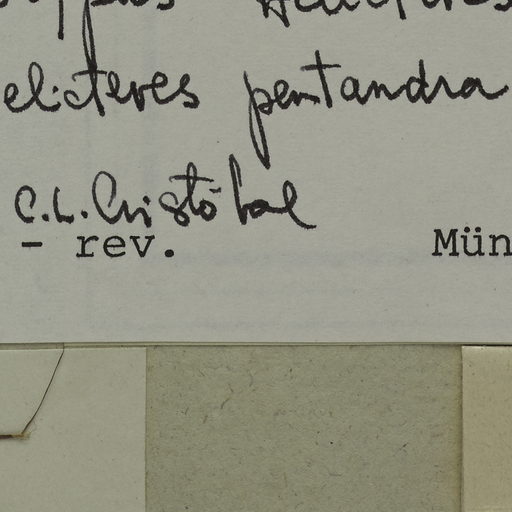 elicteres pentandra
C.L. Cristóbal
- rev. Mün